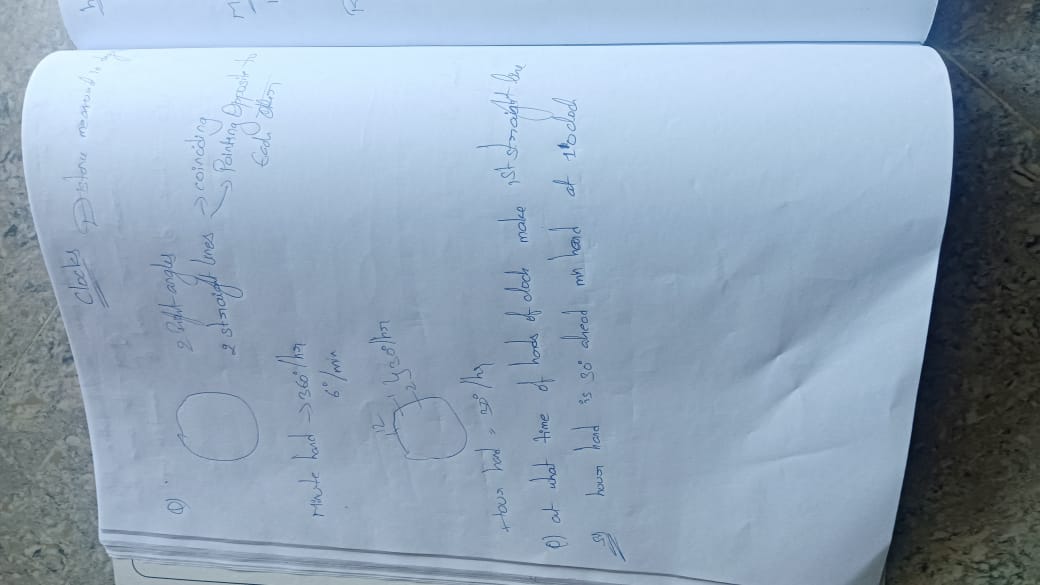 Clocks Distance measured in
Q) 2 right angles
2 straight lines → coinciding
→ Pointing Opposite to
Each other
Minute hand → 360°/hr
6°/min
12
1
2
30°/hr
Hour hand = 30°/hr
Q) at what time of hands of clock make 1st straight line
hour hand is 30° ahead min hand at 1'o clock